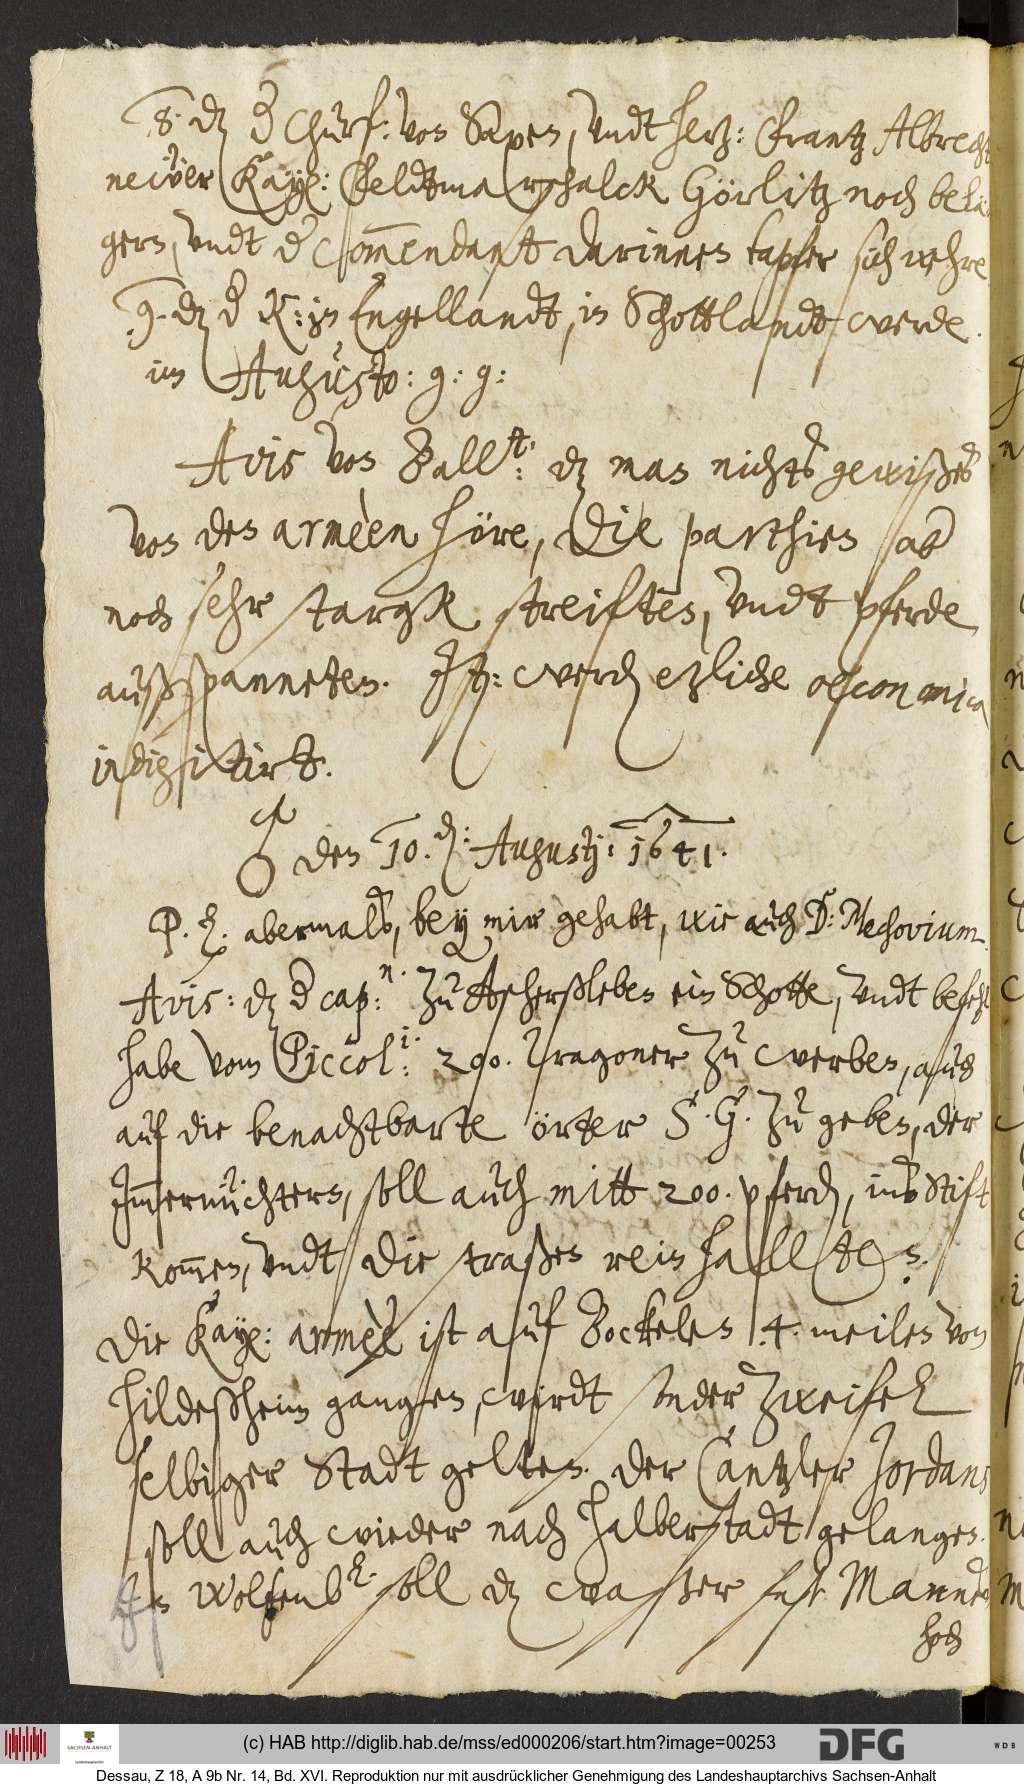 8. dz der Churf: von Saxen, undt hertz: Frantz Albrecht
newer Kayß: Feldtmarschalck Görlitz noch belä-
gern, undt der Commendant darinnen tapfer sich wehre
9. dz der K: in Engellandt, in Schottlandt werde.
im Augusto: g: g:
Avis von Ballst: dz man nichts gewißes
von den armèen höre, Die parthien ab
noch sehr starck streiften, undt pferde
außspanneten. It: werden etzliche oeconomica
indigitirt.
♂ den 10. d: Augusti: 1641.
P. h. abermals, bey mir gehabt, wie auch D: Mechovium.
Avis: dz der cap:n. zu Aschersleben ein Schotte, undt befehl
habe vom Piccol:i. 200. Dragoner zu werben, auch
auf die benachtbarte örter S. G. zu geben, der
Immernüchtern, soll auch mitt 200. pferden, ins Stift
kommen, undt die straßen rein hallten.
Die Kayß: armèe ist auf Bockelen 4. meilen von
Hildeßheim gangen, wirdt sonder zweifel
selbiger Stadt gelten. der Cantzler Jordans
soll auch wieder nach Halberstadt gelangen.
In Wolfenb. soll dz waßer fast Manns
hoch
(c) HAB http://diglib.hab.de/mss/ed000206/start.htm?image=00253
SACHSEN-ANHALT
DFG
WDB
Dessau, Z 18, A 9b Nr. 14, Bd. XVI. Reproduktion nur mit ausdrücklicher Genehmigung des Landeshauptarchivs Sachsen-Anhalt